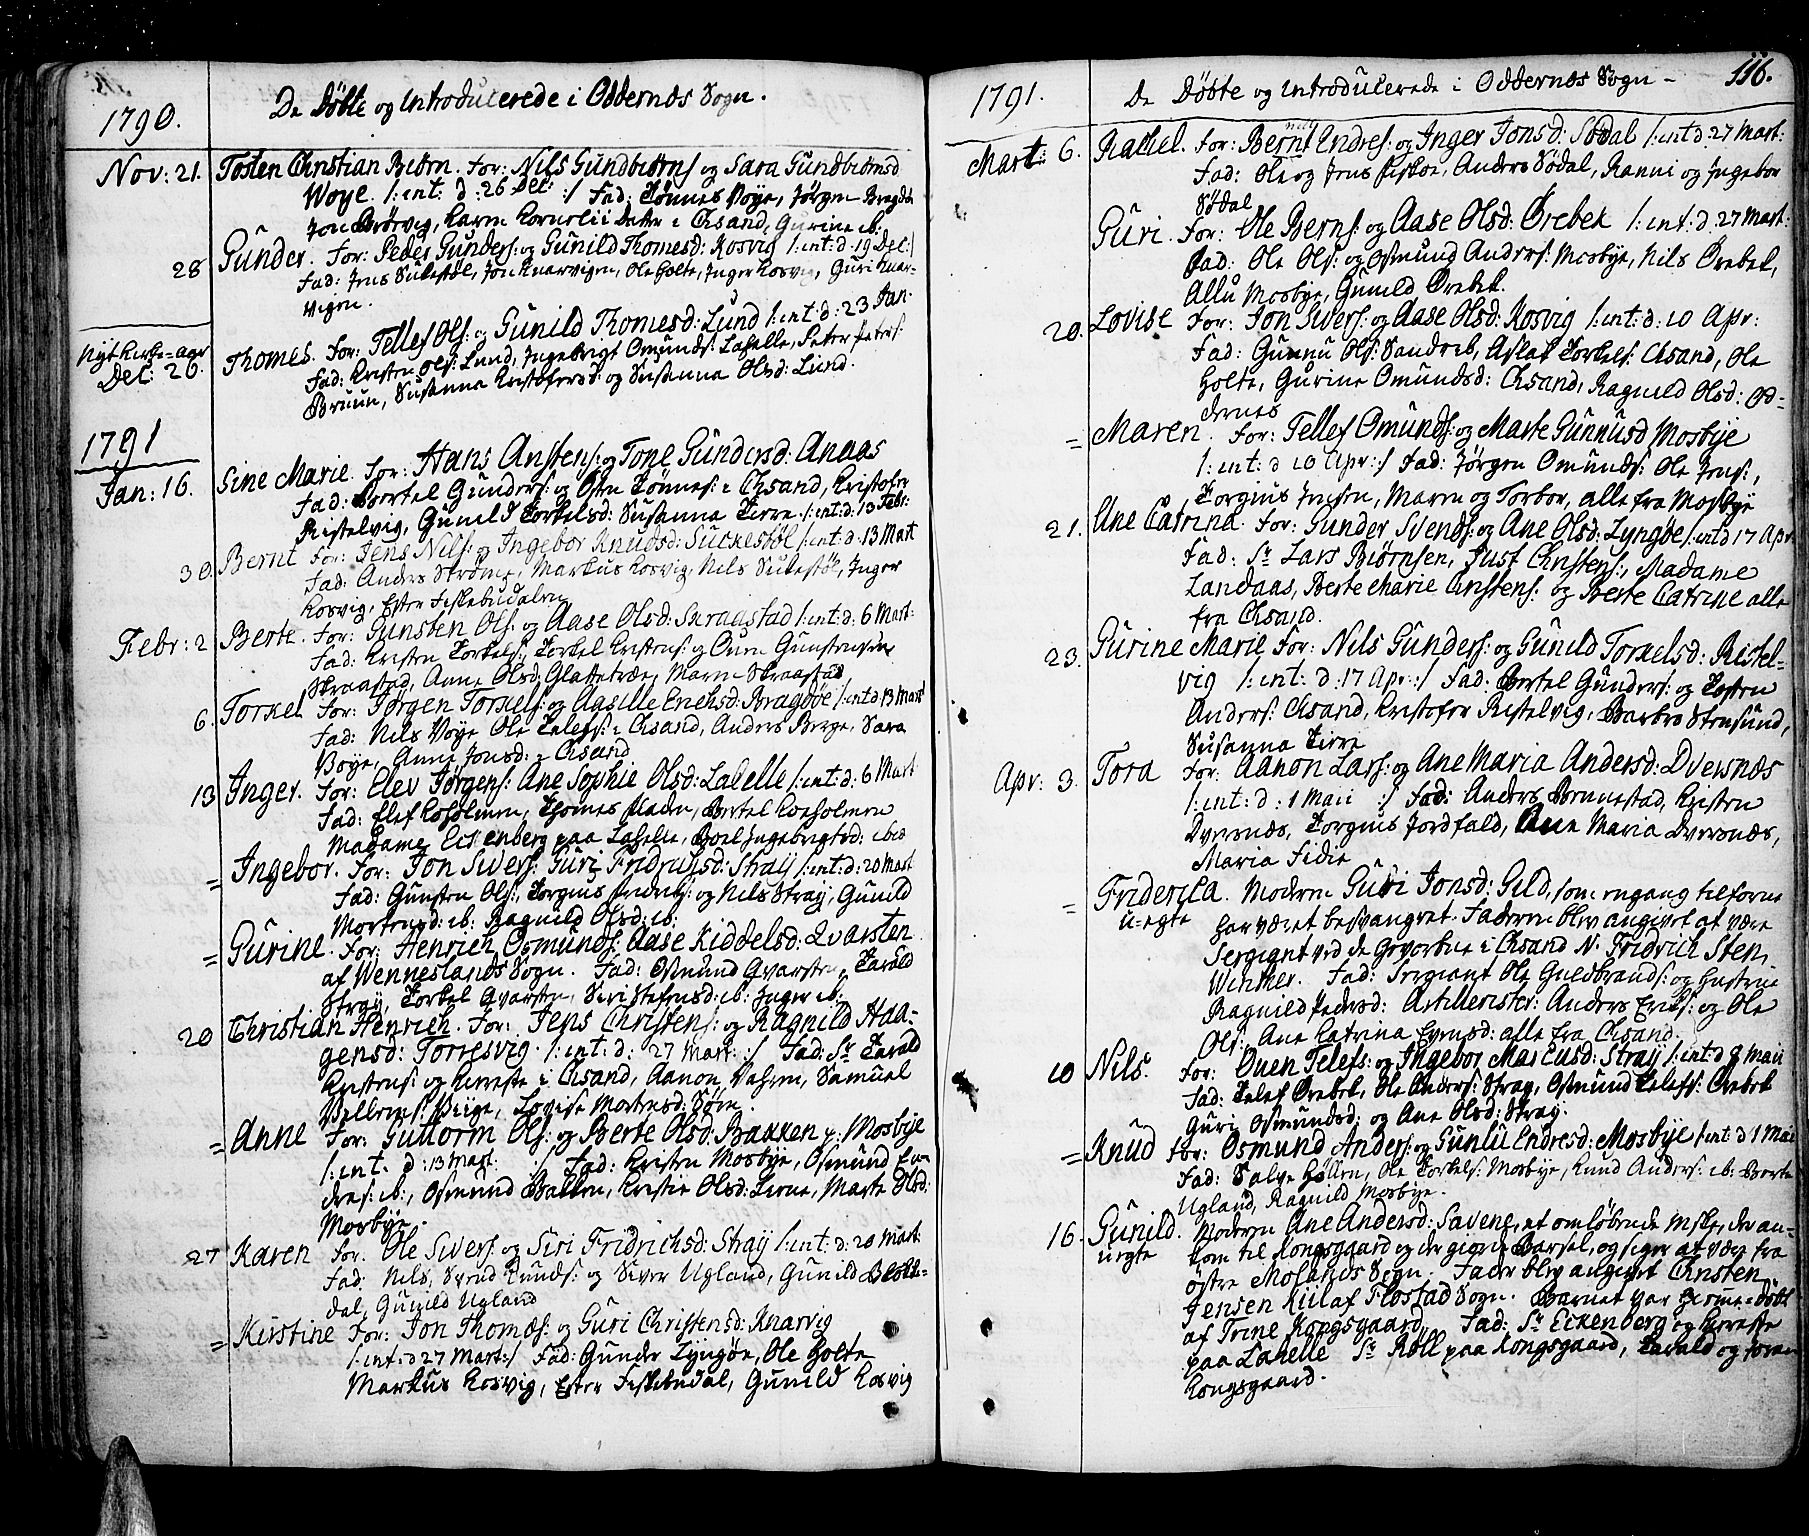 1790.
De Döbte og Introdulerede i Oddernæs Sogn.
Nov: 21. Tosten Christian Biörn. For: Nils Gundbiörns: og Sara Gundbiörnsd
Woye. /: int: d: 26 Dec: :/ Fad: Tönnes Voye, Jörgen Bragdö
Jon Brörvig, Karen Kornelii Datter i Chsand, Gurine ib:
28 Gunder. For: Peder Gunders: og Gunild Thomesd: Kosvig /: int: d: 19 Dec:/
Fad: Jens Sukestöl, Jon Knarvigen, Ole Holte, Inger Kosvig, Guri Knar-
vigen.
Nyt Kirke-aar
Dec: 26. Thomes. For: Tellef Ols: og Gunild Thomesd: Lund /: int: d: 23 Jan:
Fad: Kristen Ols: Lund, Ingebrigt Omunds: Lahelle, Peter Peters:
Bruun, Susanna Kristofersd: og Susanna Olsd: Lund.
1791
Jan: 16. Sine Marie. For: Hans Anstens: og Tone Gundersd: Anaas
Fad: Bertel Gunders: og Osten Tönnes: i Chsand, Kristofer
Ristelvig, Gunild Torkelsd: Susanna Tirre. /: int: d: 13 Febr:
30. Bernt For: Jens Nils: og Ingebor Knudsd: Suckestöl /: int: d: 13 Mart
Fad: Anders Strömme, Markus Kosvig, Nils Sukestöl, Inger
Kosvig, Ester Fiskebudalen
Febr: 2 Berte. For: Gunsten Ols: og Aase Olsd: Skraastad /: int: d: 6 Mart:
Fad: Kristen Torkels:, Torkel Kristens: og Ouen Gunstensen
Skraastad, Anne Olsd: Glattetræ, Maren Skraastad,
6. Torkel For: Jörgen Torkels: og Aasille Erichsd: Bragdöe /: int d: 13 Mart
Fad: Nils Voye Ole Telefs: i Chsand, Anders Berge, Sara
Voye, Anne Jonsd: i Chsand
13 Inger. For: Elev Jörgens: Ane Sophie Olsd: Lahelle /: int: d: 6 Mart
Fad: Elef Koholmen, Thomes Maden, Bertel Koeholmen
Madame Eckenberg paa Lahelle, Boel Ingebrigtsd: ibid
= Ingebor. For: Jon Sivers: Guri Fridrichsd: Straÿ /: int: d: 20 Mart
Fad: Gunsten Ols:, Torgius Fredrichs: og Nils Stray, Gunild
Mortensd: ib: Ragnild Olsd: ib:
= Gurine. For: Henrich Osmunds: Aase Kiddelsd: Qvarsten
af Wenneslands Sogn. Fad: Osmund Qvarsten, Tarald
Straÿ, Torkel Qvarsten, Siri Stefensd: ib: Inger ib:
20 Christian Henrich. For: Jens Christens: og Ragnild Haa-
gensd: Torresvig. /: int: d: 27 Mart: :/ Fad: Sr Tarald
Kristens: og Kierreste i Chsand, Aanon Vahren, Samuel
Villoms: Viige, Lovise Mortensd: Söm.
= Anne For: Guttorm Ols: og Berte Olsd: Bakken p: Mosbÿe
/: int. d: 13 Mart. :/ Fad: Kristen Mosbÿe, Osmund En-
dres: ib:, Osmund Bakken, Kristie Olsd: Tirne, Marte Olsd:
Mosbÿe.
27 Karen For: Ole Sivers: og Siri Fridrichsd: Straÿ /: int: d: 20 Mart
Fad: Nils, Svend Tunds: og Siver Ugland, Gunild Blokke-
dal, Gunild Ugland
= Kirstine For: Jon Thomes: og Guri Christensd: Knarvig
/: int: d 27 Mart:/ Fad: Gunder Lyngöe, Ole Holte
Markus Kosvig, Ester Fiskebudal, Gunild Kosvig
1791.
De Döbte og Introdulerede i Oddernæs Sogn -
116.
Mart: 6. Rachel. For: Bernt Endres: og Inger Jonsd: Södal /: int d: 27 Mart:
Fad: Ole og Jens Eskoe, Anders Södal, Ranni og Ingebor
Södal
Guri. For: Ole Berns: og Aase Olsd: Örebek /: int: d: 27 Mart:
Fad: Ole Ols: og Osmund Anders: Mosbye, Nils Örebek,
Allu Mosbye, Gunild Örebek.
20. Lovise For: Jon Sivers: og Aase Olsd: Kosvig /: int: d: 10 Apr:
Fad: Gunnu Ols: Sandreb, Aslak Torkels: Chsand, Ole
Holte, Gurine Omundsd: Chsand, Ragnild Olsd: Od-
dernes
= Maren. For: Tellef Omunds: og Marte Gunnusd Mosbÿe
/: int: d 10 Apr: :/ Fad: Jörgen Omunds: Ole Jens:,
Torgius Jensen, Maren og Torbor, alle fra Mosbÿe
21. Ane Catrina. For: Gunder Svends: og Ane Olsd: Lyngöe /: int d 17 Apr
Fad: Sr Lars Biörnsen, Just Christens:, Madame
Landaas, Berte Marie Christens: og Berte Catrine alle
fra Chsand.
23. Gurine Marie For: Nils Gunders: og Gunild Torkelsd: Ristel-
vig /: int: d: 17 Apr: :/ Fad: Bertel Gunders: og Tosten
Anders: Chsand, Kristofer Ristelvig, Barbro Stensund,
Susanna Tirre
Apr: 3. Tora For: Aanon Lars: og Ane Maria Andersd: Dversnæs
/: int: d: 1 Maii :/ Fad: Anders Bennestad, Kristen
Dversnæs, Torgius Jordfald, Ane Maria Dversnæs,
Maria Fidie
= Friderica. Moderen Guri Jonsd: Gild, som engang tilforne
u-egte har været besvangret. Faderen blev angivet at være
Sergiant ved de Gevorbne i Chsand N. Fridrich Sten
Winther. Fad: Sergiant Ole Guldbrands: og Hustrue
Ragnild Pedersd: Artillerister: Anders Eriks: og Ole
Ols: Ane Katrina Evensd: alle fra Chsand.
10 Nils. For: Ouen Telefs: og Ingebor Marcusd: Straÿ /: int: d 8 Maii
Fad: Telef Örebek, Ole Anders: Stray, Osmund Telefs: Örebek
Guri Osmundsd: og Ane Olsd: Stray.
= Knud For: Osmund Anders: og Gunlu Endresd: Mosbÿe /: int: d 1 Maii
Fad: Salve Höllen, Ole Torkels: Mosbÿe, Knud Anders: ib: Berte
Ugland, Ragnild Mosbye.
16. Gunild. Moderen Ane Andersd: Savene, et omlöbende Mske, der an-
uegte kom til Kongsgaard og der giorde Barsel, og siger at være fra
östre Molands Sogn. Fader blev angivet Christen
Jensen Kiil af Flostad Sogn. Barnet var hieme-döbt
af Trine Kongsgaard. Fad: Sr Eckenberg og Kierreste
paa Lahelle Sr Röll paa Kongsgaard, Tarald og Joran
Kongsgaard.